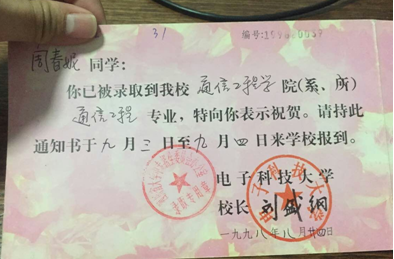 31
编号:
同学:
你已被录取到我校 通信工程学 院(系、所)
通信工程 专业，特向你表示祝贺。请持此
通知书于九月三日至九月四日来学校报到。
电子科技大学
校长 刘盛纲
一九九八年八月廿四日
电子科技大学